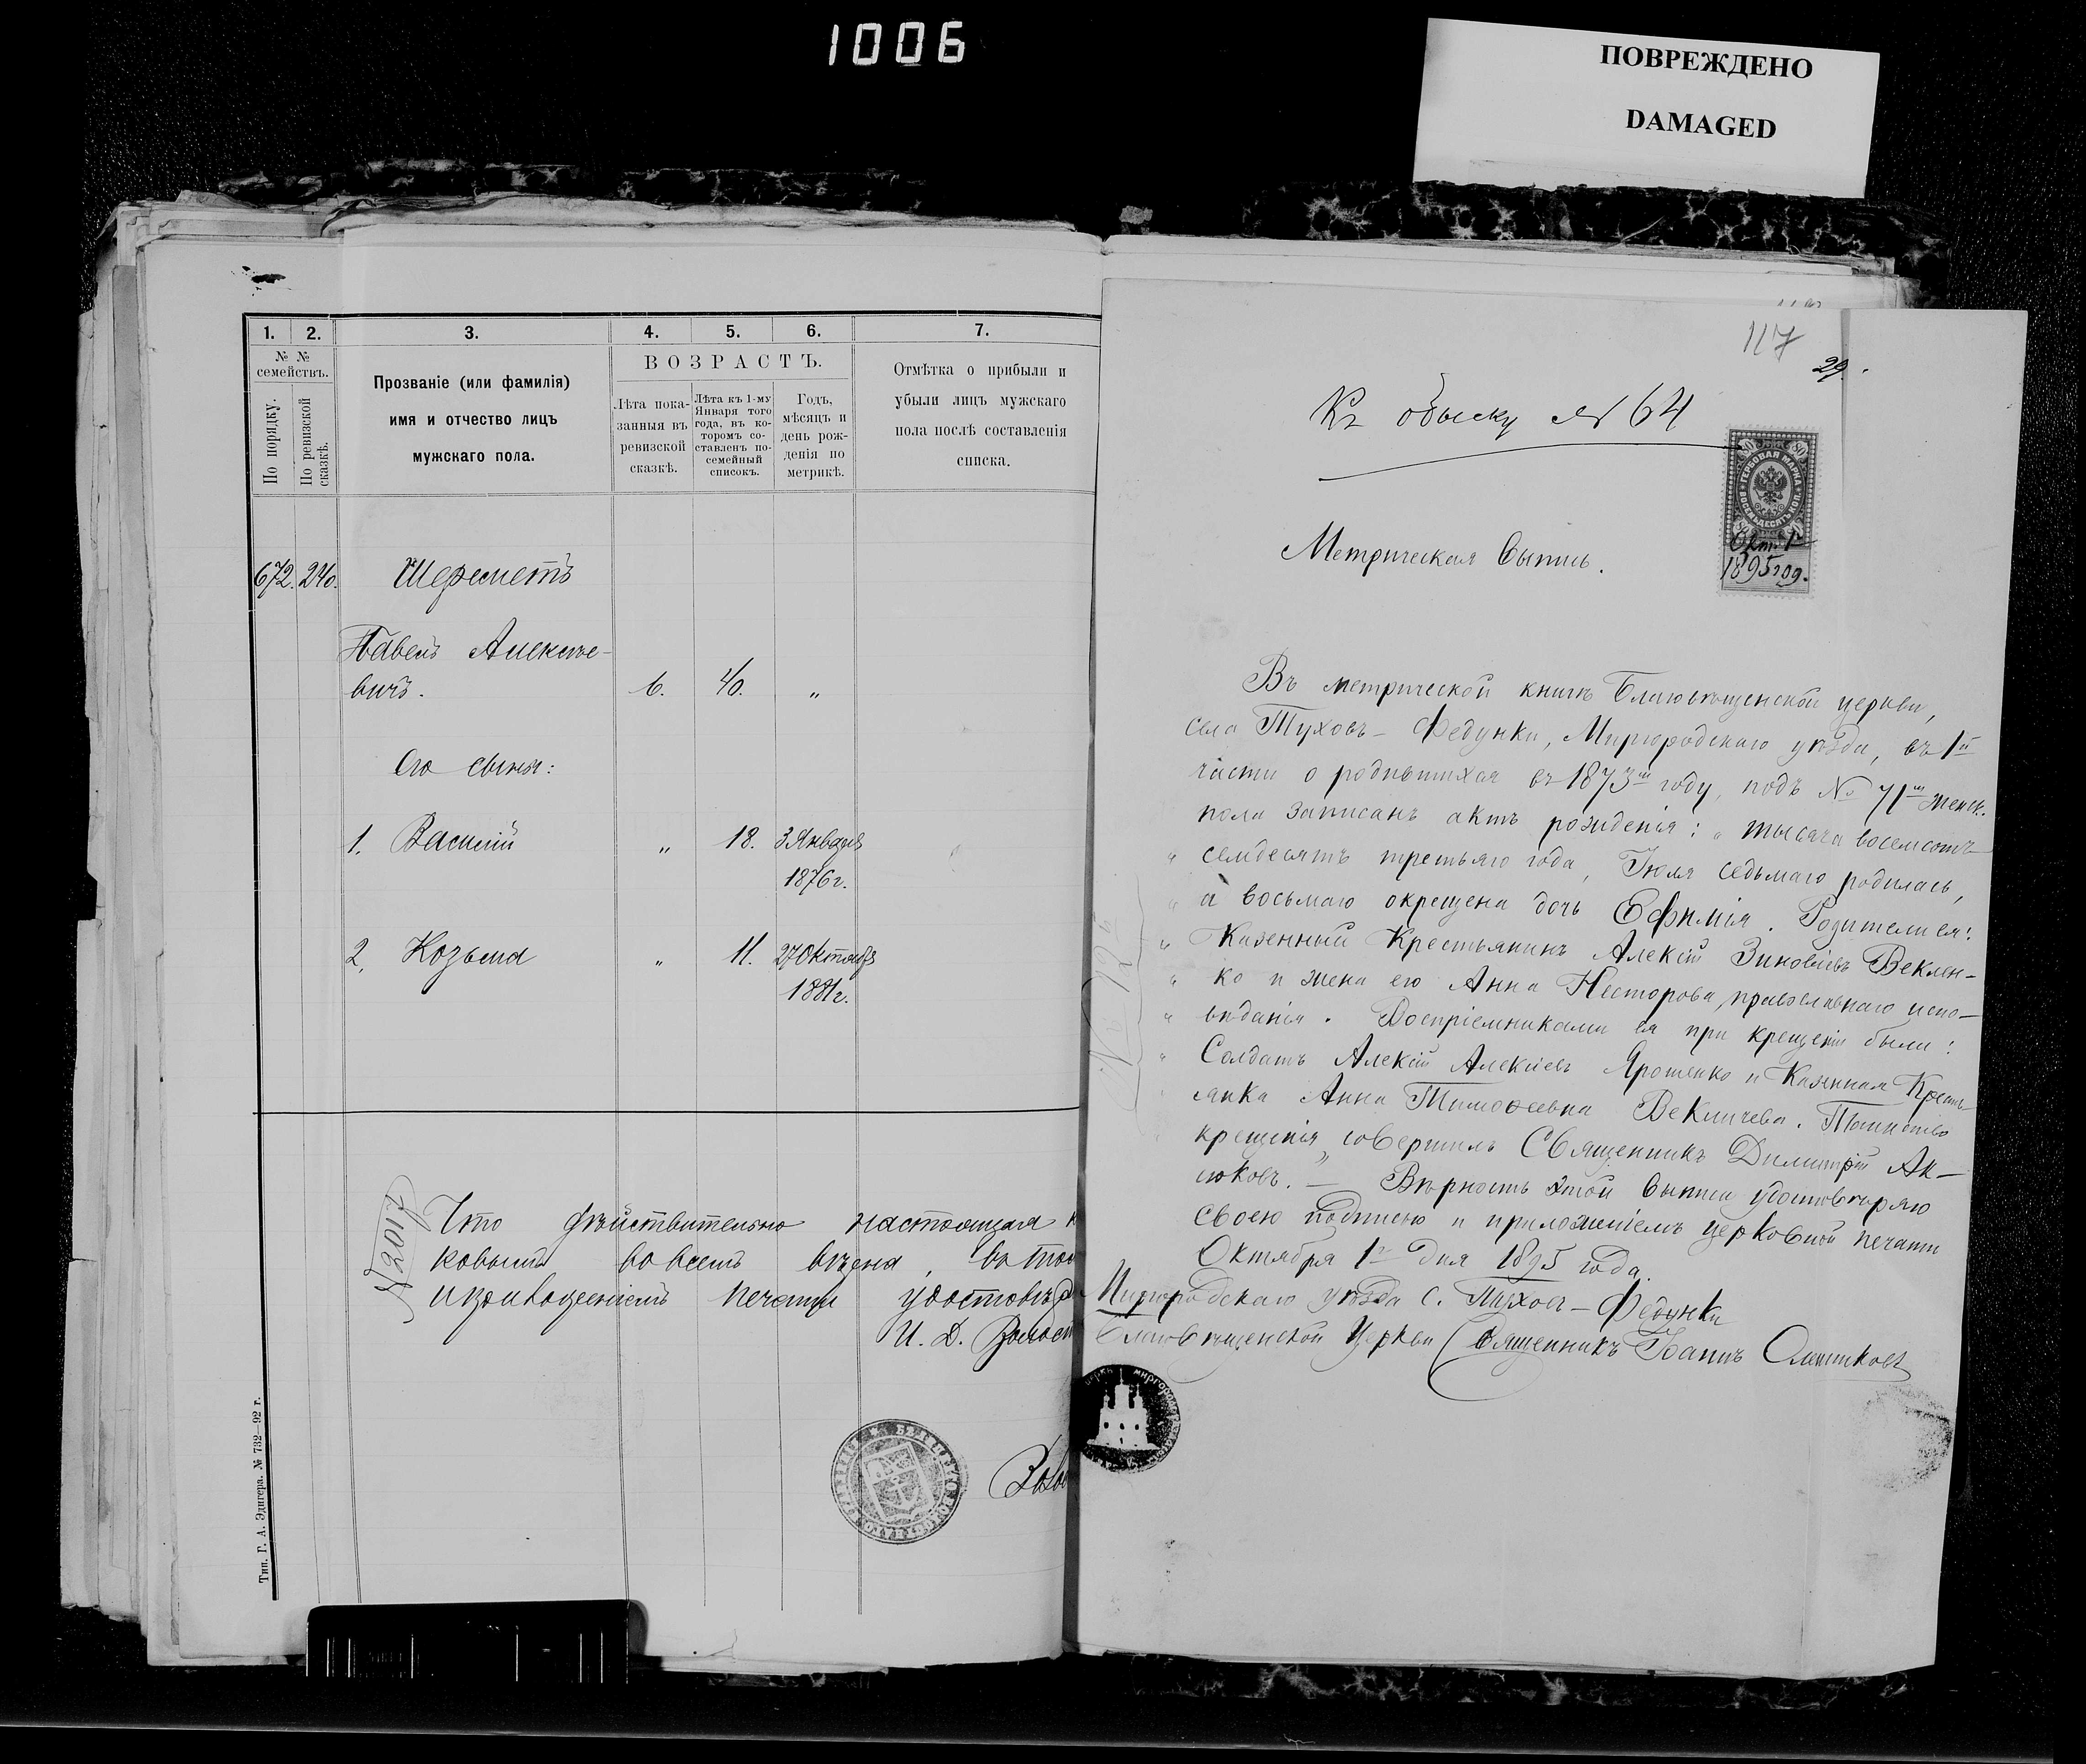 1006
ПОВРЕЖДЕНО
DAMAGED
1. 2. 3. 4. 5. 6. 7.
№ №
семействъ.
По порядку.
По ревизской
сказкѣ.
Прозваніе (или фамилія)
имя и отчество лицъ
мужскаго пола.
ВОЗРАСТЪ.
Лѣта пока-
занныя въ
ревизской
сказкѣ.
Лѣта къ 1-му
Января того
года, въ ко-
торомъ со-
ставленъ по-
семейный
списокъ.
Годъ,
мѣсяцъ и
день рож-
денія по
метрикѣ.
Отмѣтка о прибыли и
убыли лицъ мужскаго
пола послѣ составленія
списка.
672. 240. Шереметъ
Павелъ Алексѣе-
вичъ. 6. 40. „
Его сыновья:
1. Василій „ 18. 3 Января
1876 г.
2. Козьма „ 11. 27 Октября
1881 г.
№ 2017
Что дѣйствительно настоящая
ковымъ во всемъ вѣрна, въ том
и приложеніемъ печати удостовѣр
И. Д. Волост
Тип. Г. А. Эдигера. № 732—92 г.
117
29.
Къ обыску № 64
ГЕРБОВАЯ МАРКА
80 80
Окт. 1
1895 год.
Метрическая Выпись.
Въ метрической книгѣ Благовѣщенской церкви,
села Туховъ-Федунки, Миргородскаго уѣзда, въ 1й
части о родившихся въ 1873мъ году, подъ № 71мъ женск.
пола записанъ актъ рожденія: „тысяча восемсотъ
„ семдесятъ третьяго года, Іюля седьмаго родилась,
„ а восьмаго окрещена дочь Ефимія. Родители ея:
„ Казенный Крестьянинъ Алексій Зиновіевъ Веклен-
„ ко и жена его Анна Несторова, православнаго испо-
„ вѣданія. Воспріемниками ея при крещеніи были:
„ Солдатъ Алексій Алексіевъ Ярошенко и Казенная Кресть-
„ янка Анна Тимоѳеевна Векличева. Таинство
„ крещенія совершилъ Священникъ Димитрій Ак-
сюковъ.“ — Вѣрность этой выписи удостовѣряю
своею подписью и приложеніемъ церковной печати
Октября 1го дня 1895 года.
Миргородскаго уѣзда с. Туховъ-Федунки
Благовѣщенской Церкви Священникъ Іоаннъ